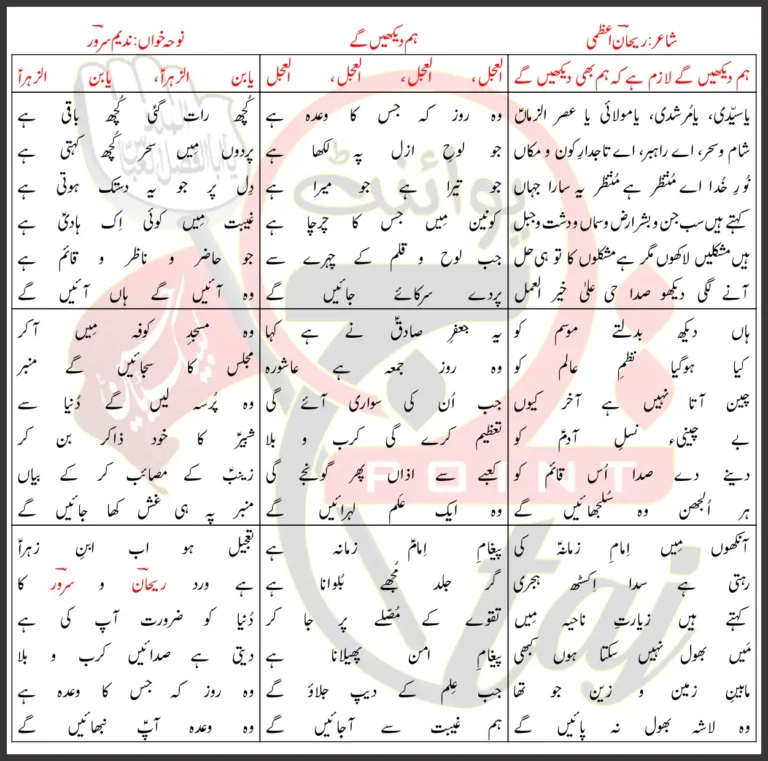 شاعر: ریحان اعظمی
ہم دیکھیں گے
نوحہ خواں: ندیم سرور
ہم دیکھیں گے لازم ہے کہ ہم بھی دیکھیں گے
العجل، العجل، العجل، العجل
یابن الزھراؑ، یابن الزھراؑ
یاسیّدی، یامُرشدی، یامولائی یا عصر الزماںؑ
شام و سحر، اے راہبر، اے تاجدارِ کون و مکاں
نُورِ خُدا اے مُنتظَر ہے مُنتظر یہ سارا جہاں
کہتے ہیں سب جن و بشر ارض و سماں و دشت و جبل
ہیں مشکلیں لاکھوں مگر ہے مشکلوں کا تو ہی حل
آنے لگی دیکھو صدا حی علیٰ خیر العمل
وہ روز کہ جس کا وعدہ ہے
جو لوحِ ازل پہ لکھا ہے
جو تیرا ہے جو میرا ہے
کونین میں جس کا چرچا ہے
جب لوح و قلم کے چہرے سے
پردے سرکائے جائیں گے
کُچھ رات گئی کُچھ باقی ہے
پردوں میں سحر کُچھ کہتی ہے
دِل پر جو یہ دستک ہوتی ہے
غیبت میں کوئی اِک ہادیؑ ہے
جو حاضر و ناظر و قائم ہے
وہ آئیں گے ہاں آئیں گے
ہاں دیکھ بدلتے موسم کو
کیا ہوگیا نظمِ عالم کو
چین آتا نہیں ہے آخر کیوں
بے چینیء نسلِ آدمؑ کو
دینے دے صدا اُس قائم کو
ہر اُلجھن وہ سُلجھائیں گے
یہ جعفرِ صادقؑ نے ہے کہا
وہ روز جمعہ ہے عاشورہ
جب اُن کی سواری آئے گی
تعظیم کرے گی کرب و بلا
کعبے سے اذاں پھر گونجے گی
وہ ایک عَلم لہرائیں گے
وہ مسجدِ کوفہ میں آ کر
مجلس کا سجائیں گے منبر
وہ پُرسہ لیں گے دُنیا سے
شبیرؑ کا خود ذاکر بن کر
زینبؑ کے مصائب کر کے بیاں
منبر پہ ہی غش کھا جائیں گے
آنکھوں میں اِمامِ زمانہؑ کی
رہتی ہے سدا اِکسٹھ ہجری
کہتے ہیں زیارتِ ناحیہ میں
مَیں بھول نہیں سکتا ہوں کبھی
مابینِ زمین و زین جو تھا
وہ لاشہ بھول نہ پائیں گے
پیغامِ اِمامؑ زمانہ ہے
گر جلد مُجھے بُلوانا ہے
تقوے کے مُصّلے پر جا کر
پیغامِ امن پھیلانا ہے
جب عِلم کے دیپ جلاؤ گے
ہم غیبت سے آجائیں گے
تعجیل ہو اب ابنِ زہراؑ
ہے ورد ریحان و سرور کا
دُنیا کو ضرورت آپ کی ہے
دیتی ہے صدائیں کرب و بلا
وہ روز کہ جس کا وعدہ ہے
وہ وعدہ آپؑ نبھائیں گے
پوائنٹ
POINT
taj